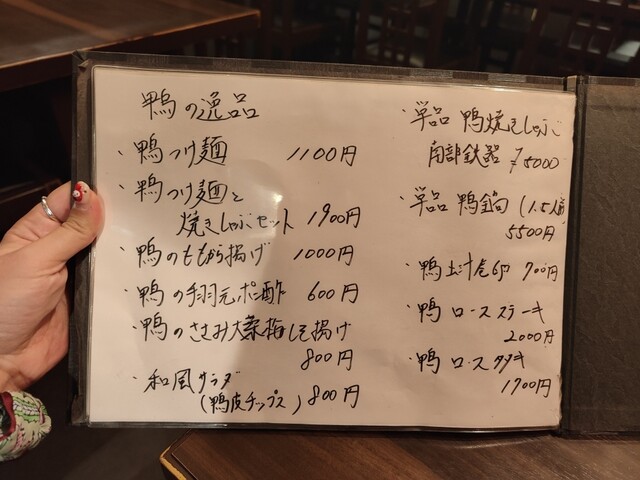 鴨の逸品
・鴨つけ麺 1100円
・鴨つけ麺と
焼きしゃぶセット 1900円
・鴨のももから揚げ 1000円
・鴨の手羽元ポン酢 600円
・鴨のささみ大葉梅しそ揚げ
800円
・和風サラダ
(鴨皮チップス) 800円
・単品 鴨焼きしゃぶ
南部鉄器 ¥5000
・単品 鴨鍋 (1.5人前)
5500円
・鴨出汁 700円
・鴨 ロースステーキ
2000円
・鴨 ロースタタキ
1700円